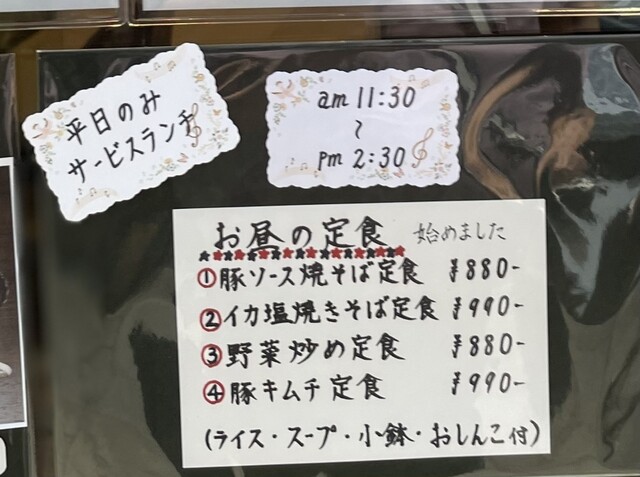 平日のみ
サービスランチ
am 11:30
～
pm 2:30
お昼の定食 始めました
①豚ソース焼そば定食 ¥880-
②イカ塩焼きそば定食 ¥990-
③野菜炒め定食 ¥880-
④豚キムチ定食 ¥990-
(ライス・スープ・小鉢・おしんこ付)